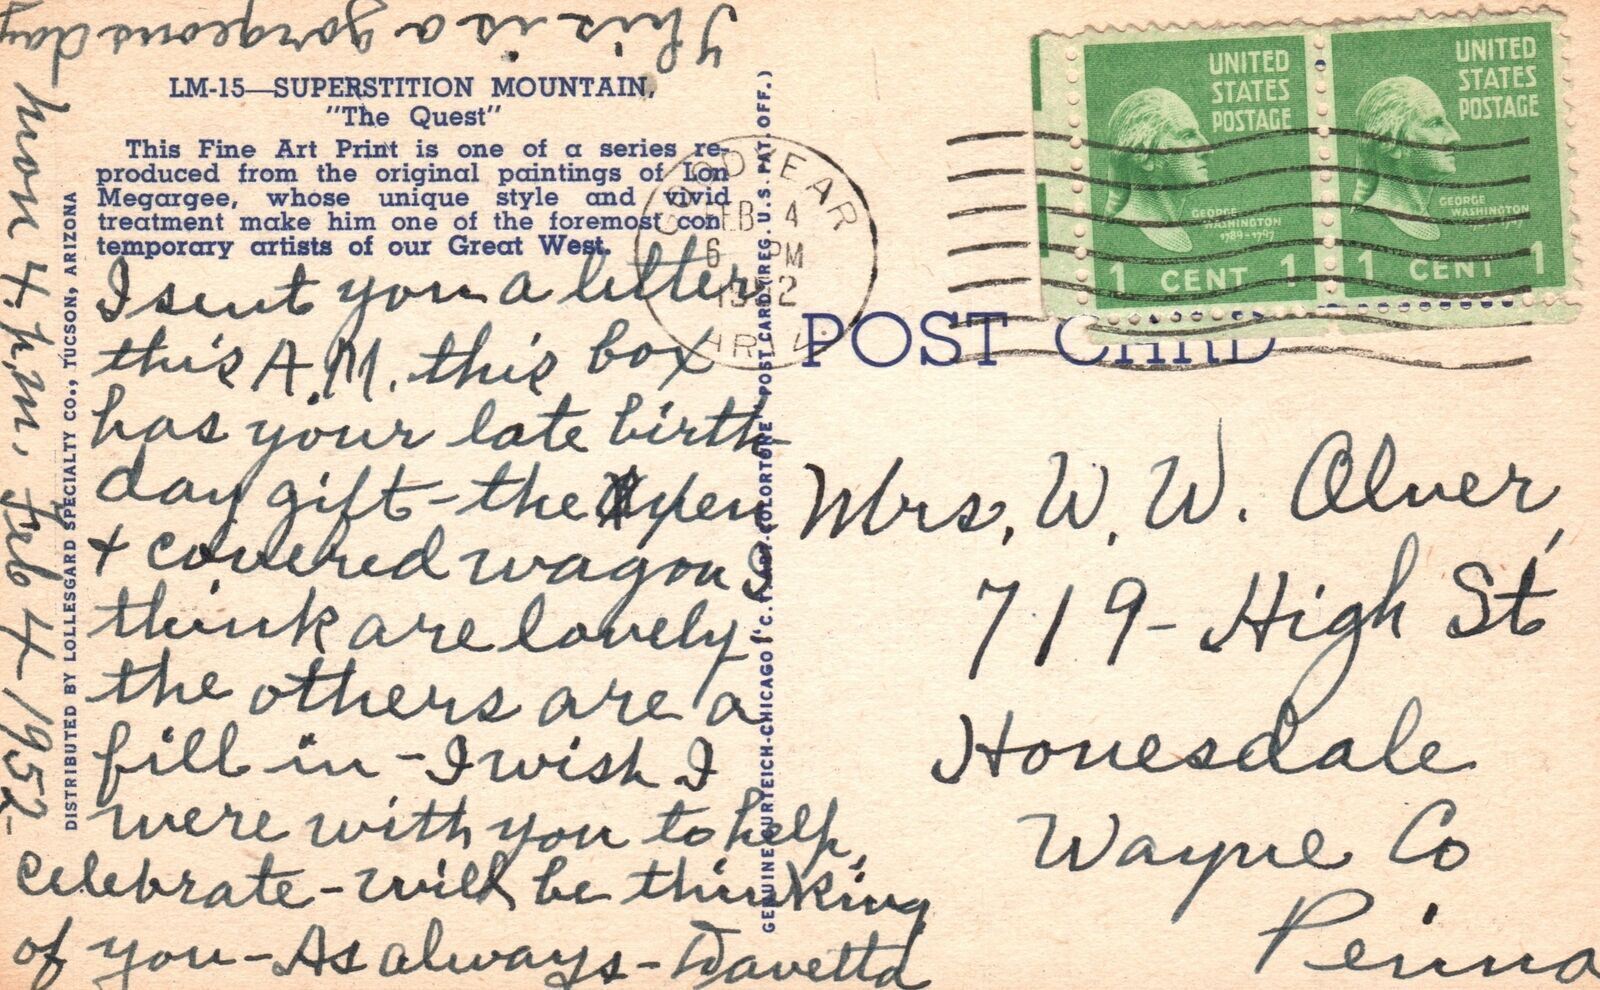 This is a gorgeous day
Mon 4 P.M. Feb 4-1952-
LM-15—SUPERSTITION MOUNTAIN,
"The Quest"
This Fine Art Print is one of a series re-
produced from the original paintings of Lon
Megargee, whose unique style and vivid
treatment make him one of the foremost con
temporary artists of our Great West.
I sent you a letter
this A.M. this box
has your late birth-
day gift-the open
+ covered wagons
think are lovely
the others are a
fill in-I wish I
were with you to help
celebrate-will be thinking
of you-As always-Davetta
DISTRIBUTED BY LOLLESGARD SPECIALTY CO., TUCSON, ARIZONA
GENUINE CURTEICH-CHICAGO "C.T. ART-COLORTONE" POST CARD (REG. U.S. PAT. OFF.)
GOODYEAR
FEB 4
6 PM
1952
ARIZ.
UNITED
STATES
POSTAGE
GEORGE
WASHINGTON
1789-1797
1 CENT 1
UNITED
STATES
POSTAGE
GEORGE
WASHINGTON
1789-1797
1 CENT 1
POST CARD
Mrs. W. W. Olver,
719-High St
Honesdale
Wayne Co
Penna